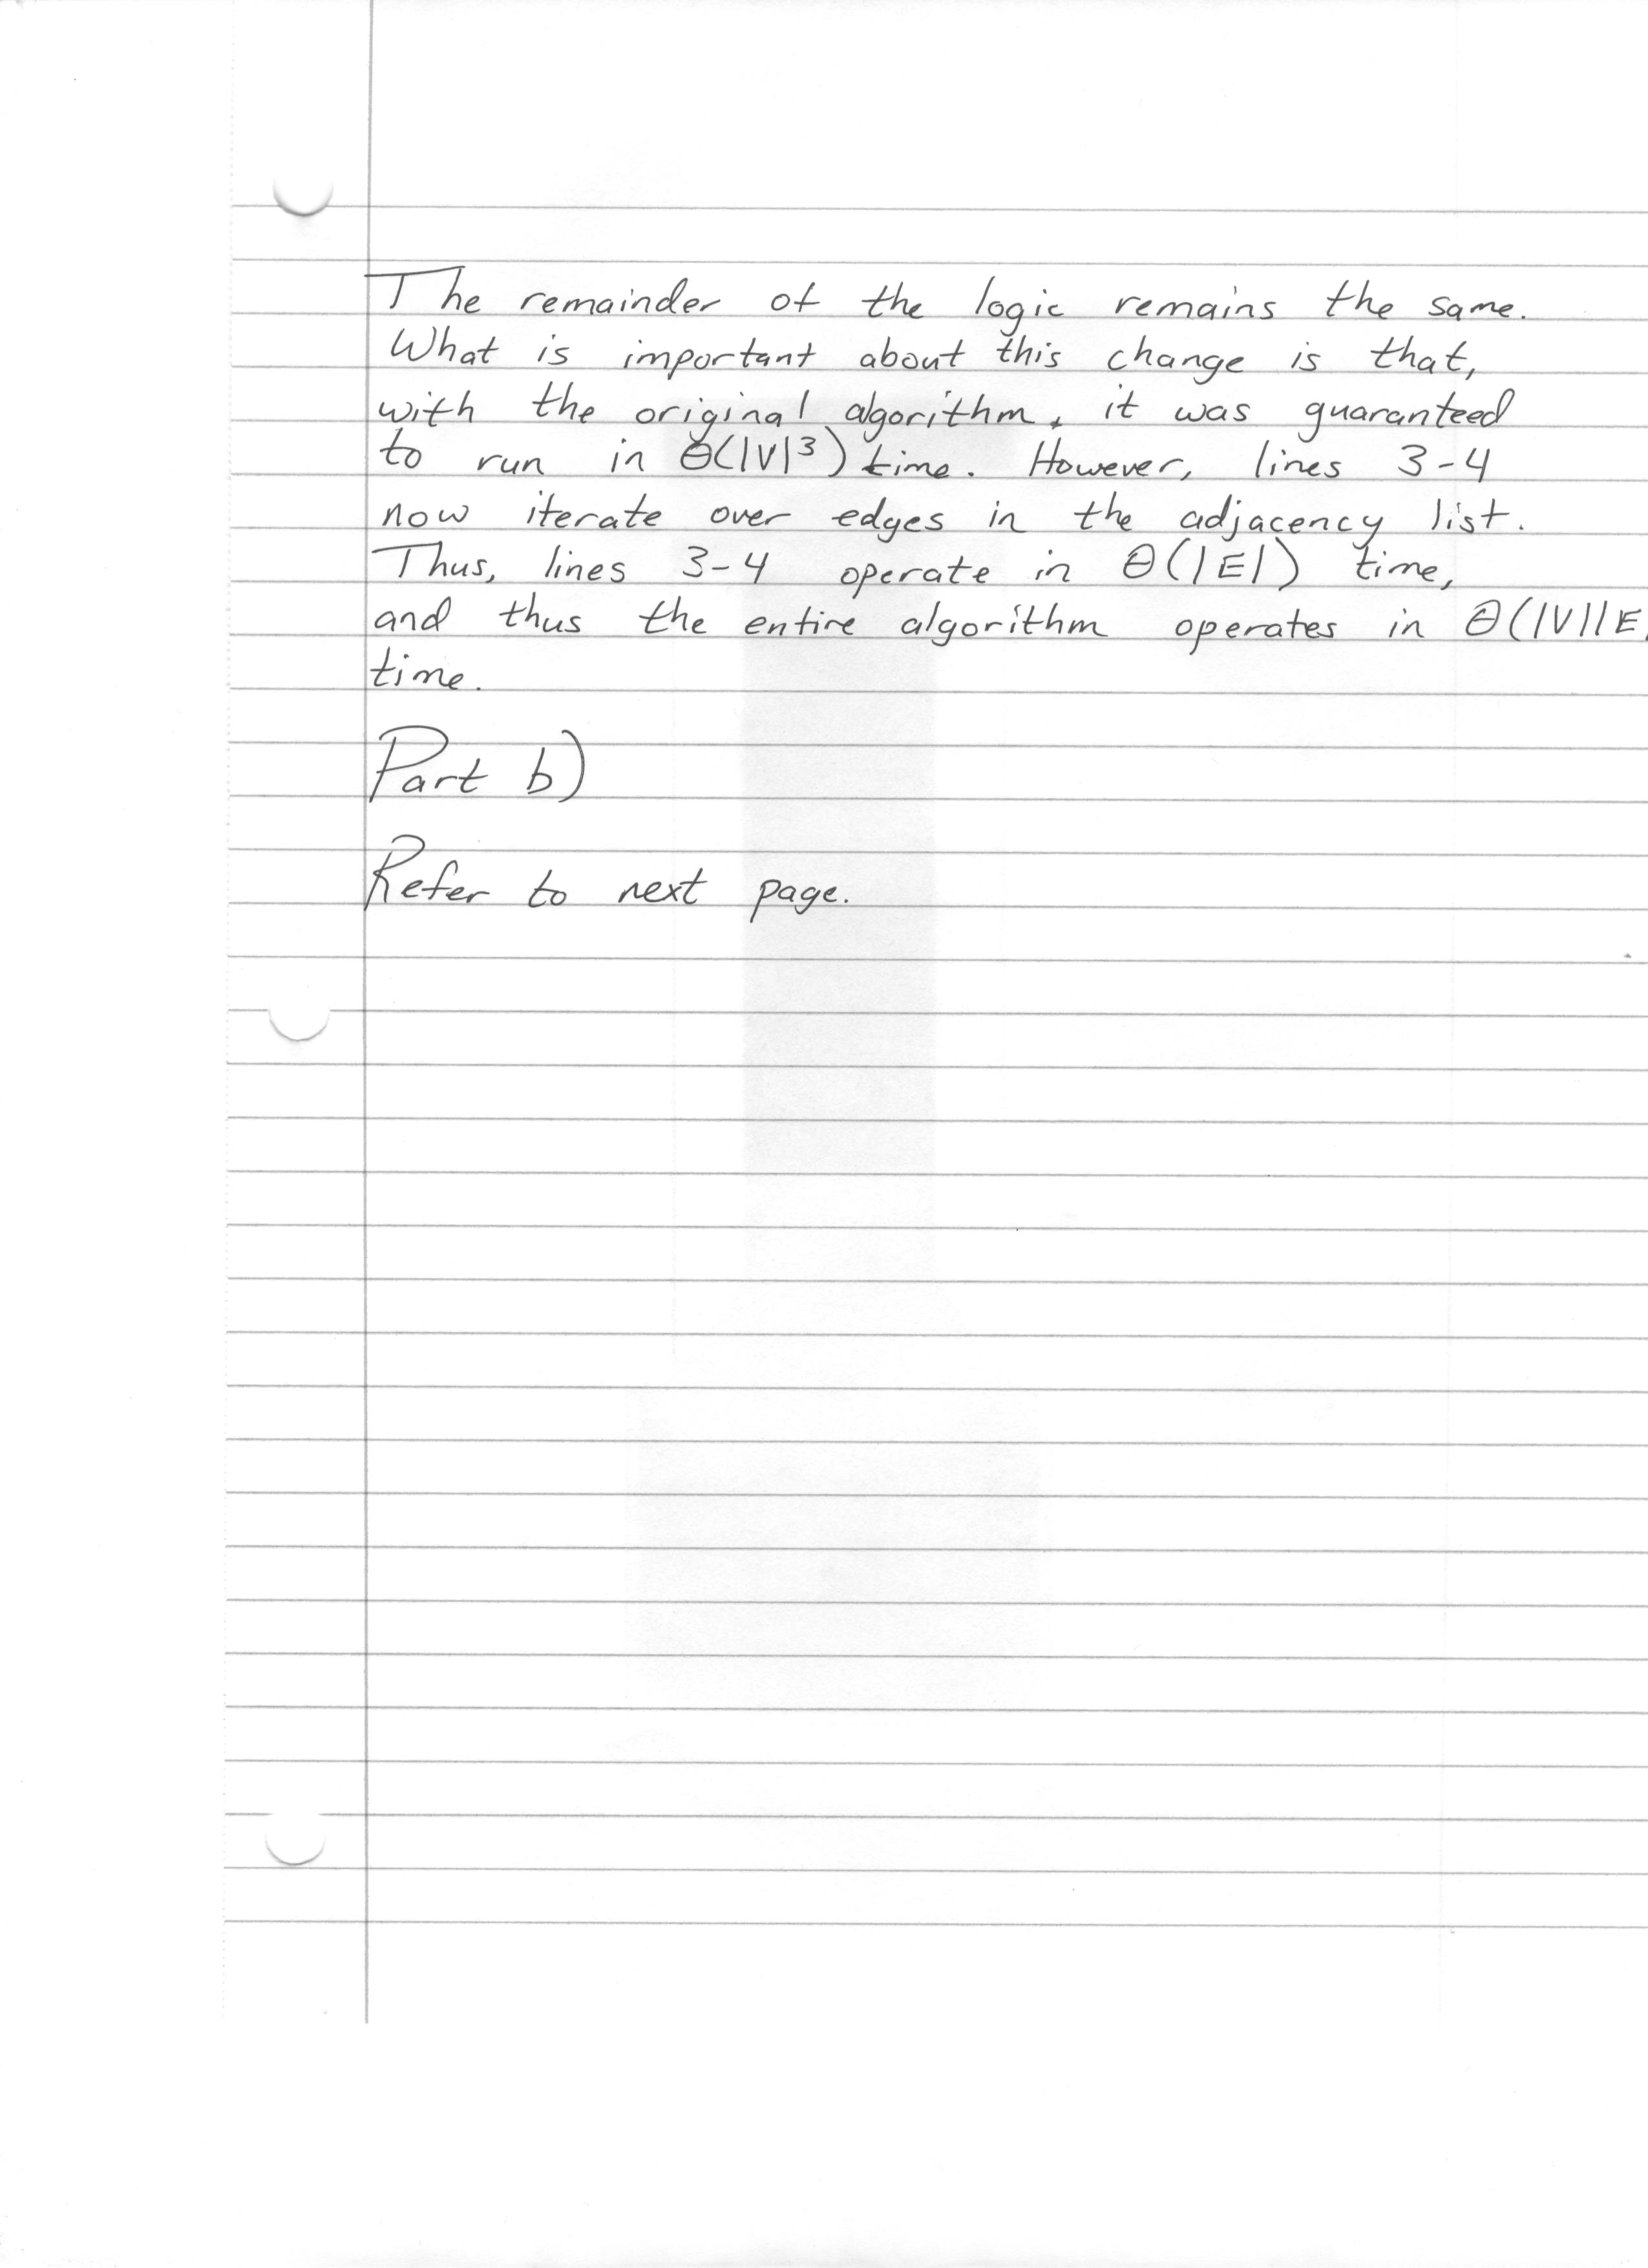 The remainder of the logic remains the same.
What is important about this change is that,
with the original algorithm, it was guaranteed
to run in Θ(|V|³) time. However, lines 3-4
now iterate over edges in the adjacency list.
Thus, lines 3-4 operate in Θ(|E|) time,
and thus the entire algorithm operates in Θ(|V||E
time.
Part b)
Refer to next page.